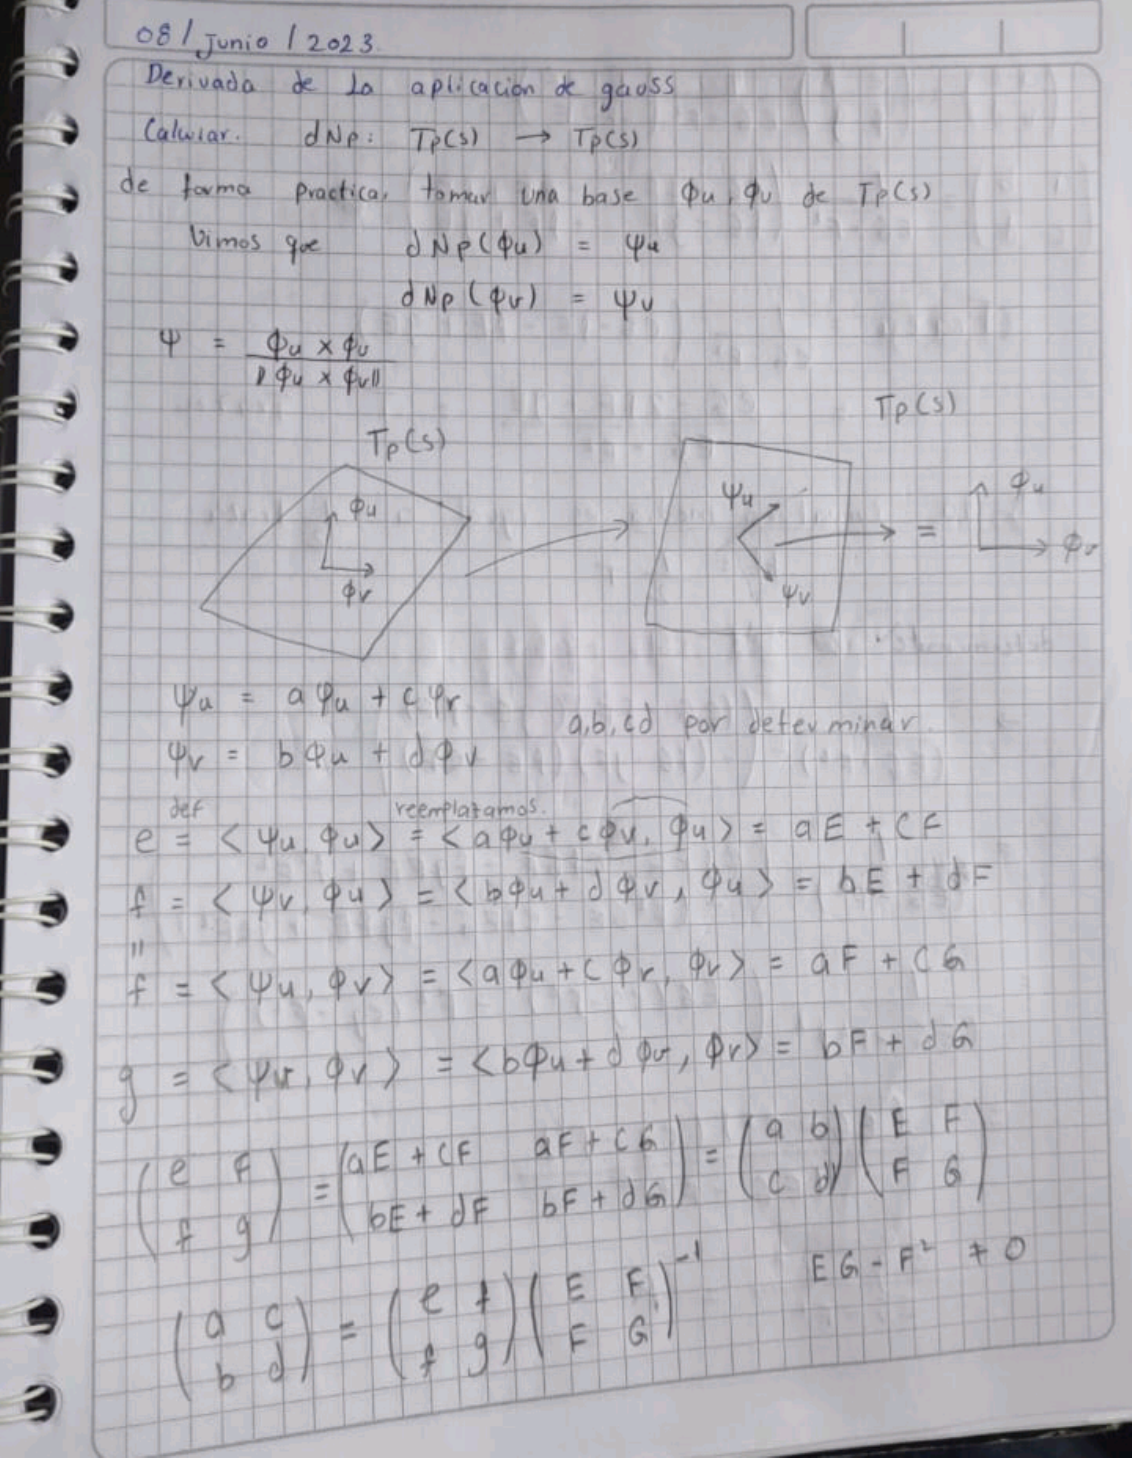 08 / Junio / 2023
Derivada de la aplicación de gauss
Calcular. dNp: Tp(s) → Tp(s)
de forma practica, tomar una base ϕu, ϕv de Tp(s)
Vimos que dNp(ϕu) = ψu
dNp(ϕv) = ψv
ψ = ϕu × ϕv / ||ϕu × ϕv||
Tp(s)
Tp(s)
ϕu
ϕv
ψu
ψv
=
ϕu
ϕv
ψu = aφu + cφv
a,b,cd por determinar.
ψv = bϕu + dϕv
def reemplazamos.
e = <ψu, ϕu> = <aϕu + cϕv, ϕu> = aE + CF
f = <ψv, ϕu> = <bϕu + dϕv, ϕu> = bE + dF
"
f = <ψu, ϕv> = <aϕu + cϕv, ϕv> = aF + CG
g = <ψv, ϕv> = <bϕu + dϕv, ϕv> = bF + dG
(e f / f g) = (aE + CF aF + CG / bE + dF bF + dG) = (a b / c d) (E F / F G)
(a c / b d) = (e f / f g) (E F / F G)⁻¹ EG - F² ≠ 0